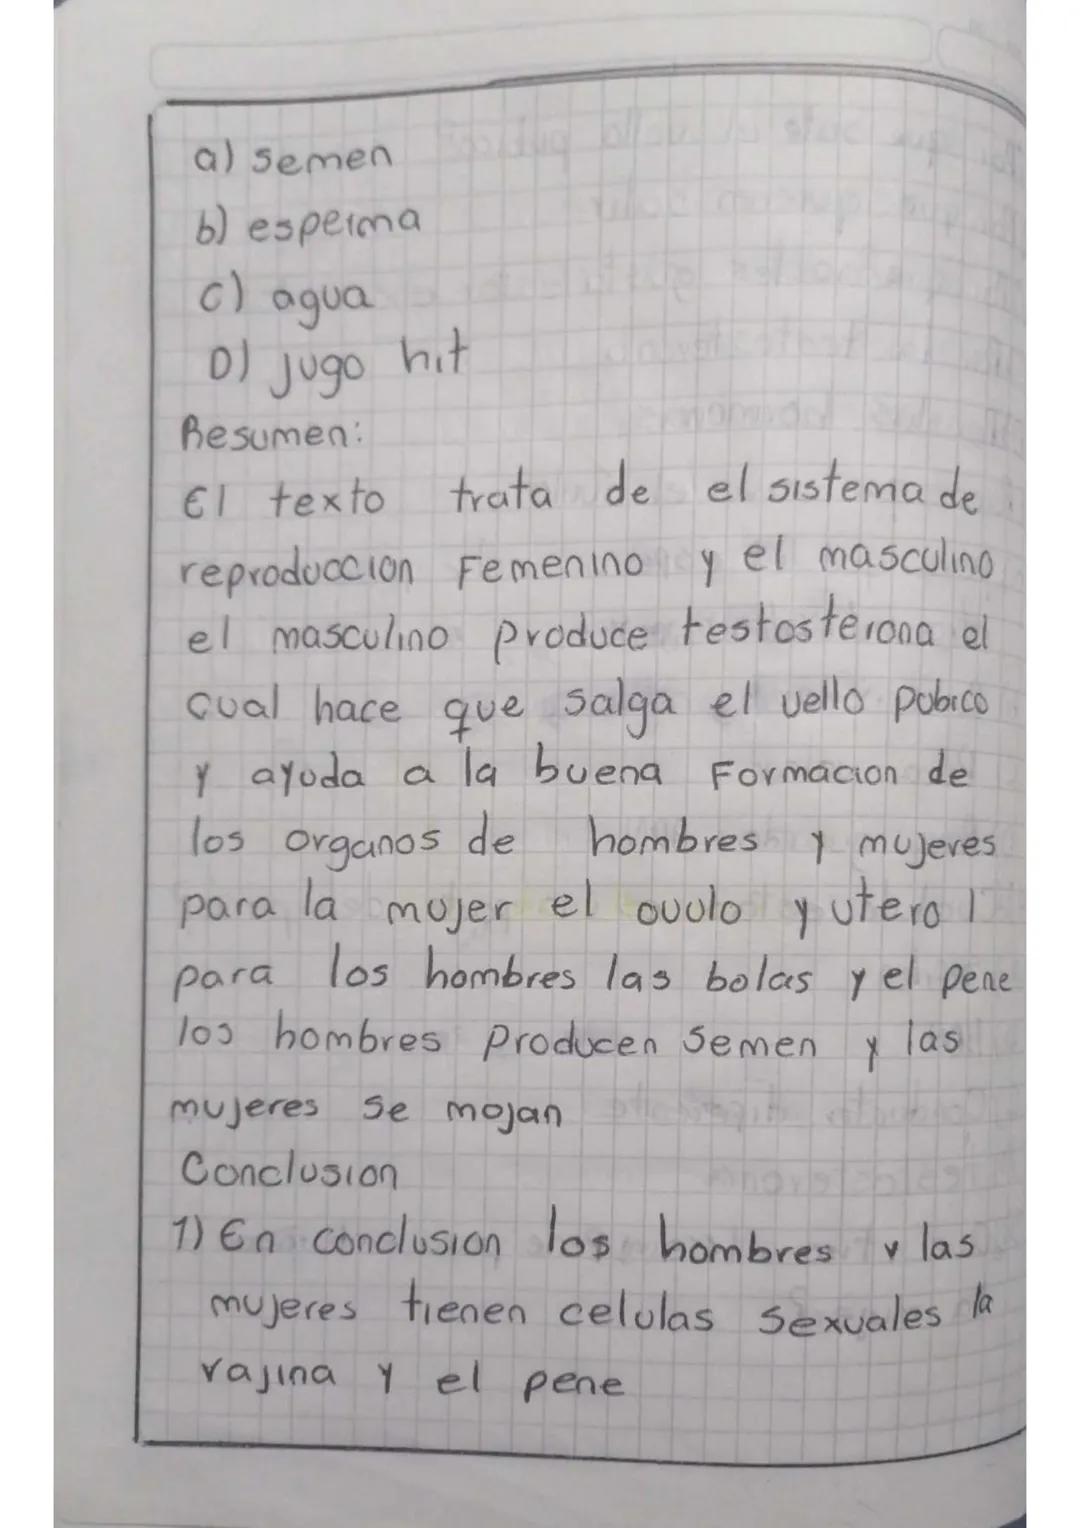 a) semen
b) esperma
c) agua
D) jugo hit
Resumen:
El texto trata de el sistema de
reproduccion Femenino y el masculino
el masculino produce testosterona el
cual hace que salga el vello pubico
y ayuda a la buena Formacion de
los organos de hombres y mujeres
para la mujer el ovulo y utero |
para los hombres las bolas y el pene
los hombres Producen Semen y las
mujeres se mojan
Conclusion
1) En conclusion los hombres y las
mujeres tienen celulas sexuales la
vajina y el pene